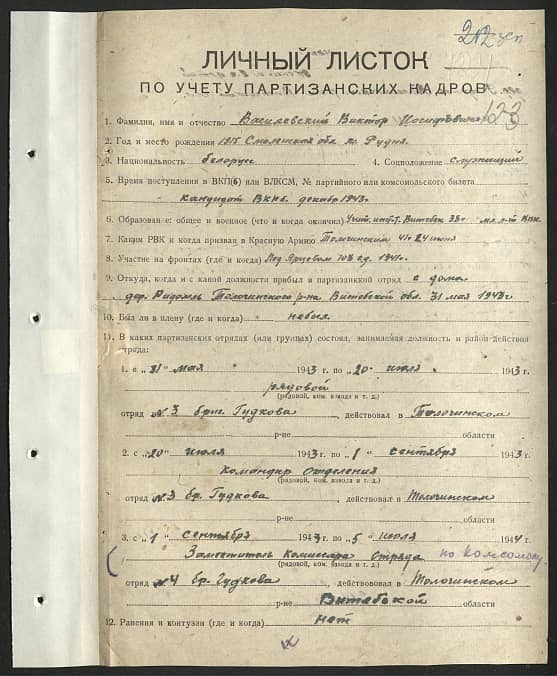 212 зеп
ЛИЧНЫЙ ЛИСТОК
ПО УЧЕТУ ПАРТИЗАНСКИХ КАДРОВ
123
1. Фамилия, имя и отчество Василевский Виктор Иосифович
2. Год и место рождения 1915 Смоленская обл. Рудня.
3. Национальность белорус 4. Соцположение служащий
5. Время поступления в ВКП(б) или ВЛКСМ, № партийного или комсомольского билета
кандидат ВКПб. декабрь 1943г.
6. Образование: общее и военное (что и когда окончил) Учит. инст-т. Витебск 38г. мл. л-т
7. Каким РВК и когда призван в Красную Армию Толочинским 41г 24 июня
8. Участие на фронтах (где и когда) Под Ярцевом 108 с.д. 1941г.
9. Откуда, когда и с какой должности прибыл в партизанский отряд с дома
дер. Ридомль Толочинского р-на Витебской обл. 31 мая 1943г
10. Был ли в плену (где и когда) небыл.
11. В каких партизанских отрядах (или группах) состоял, занимаемая должность и район действия
отряда:
1. с „31“ мая 1943 г. по „20“ июля 1943 г.
рядовой
(рядовой, ком. взвода и т. д.)
отряд №3 бриг. Гудкова, действовал в Толочинском
р-не области
2. с „20“ июля 1943 г. по „1“ сентября 1943 г.
командир отделения
(рядовой, ком. взвода и т. д.)
отряд №3 бр. Гудкова, действовал в Толочинском
р-не области
3. с „1“ сентября 1943 г. по „5“ июля 1944 г.
Заместитель комиссара отряда по комсомолу
(рядовой, ком. взвода и т. д.)
отряд №4 бр. Гудкова, действовал в Толочинском
р-не Витебской области
12. Ранения и контузии (где и когда) нет